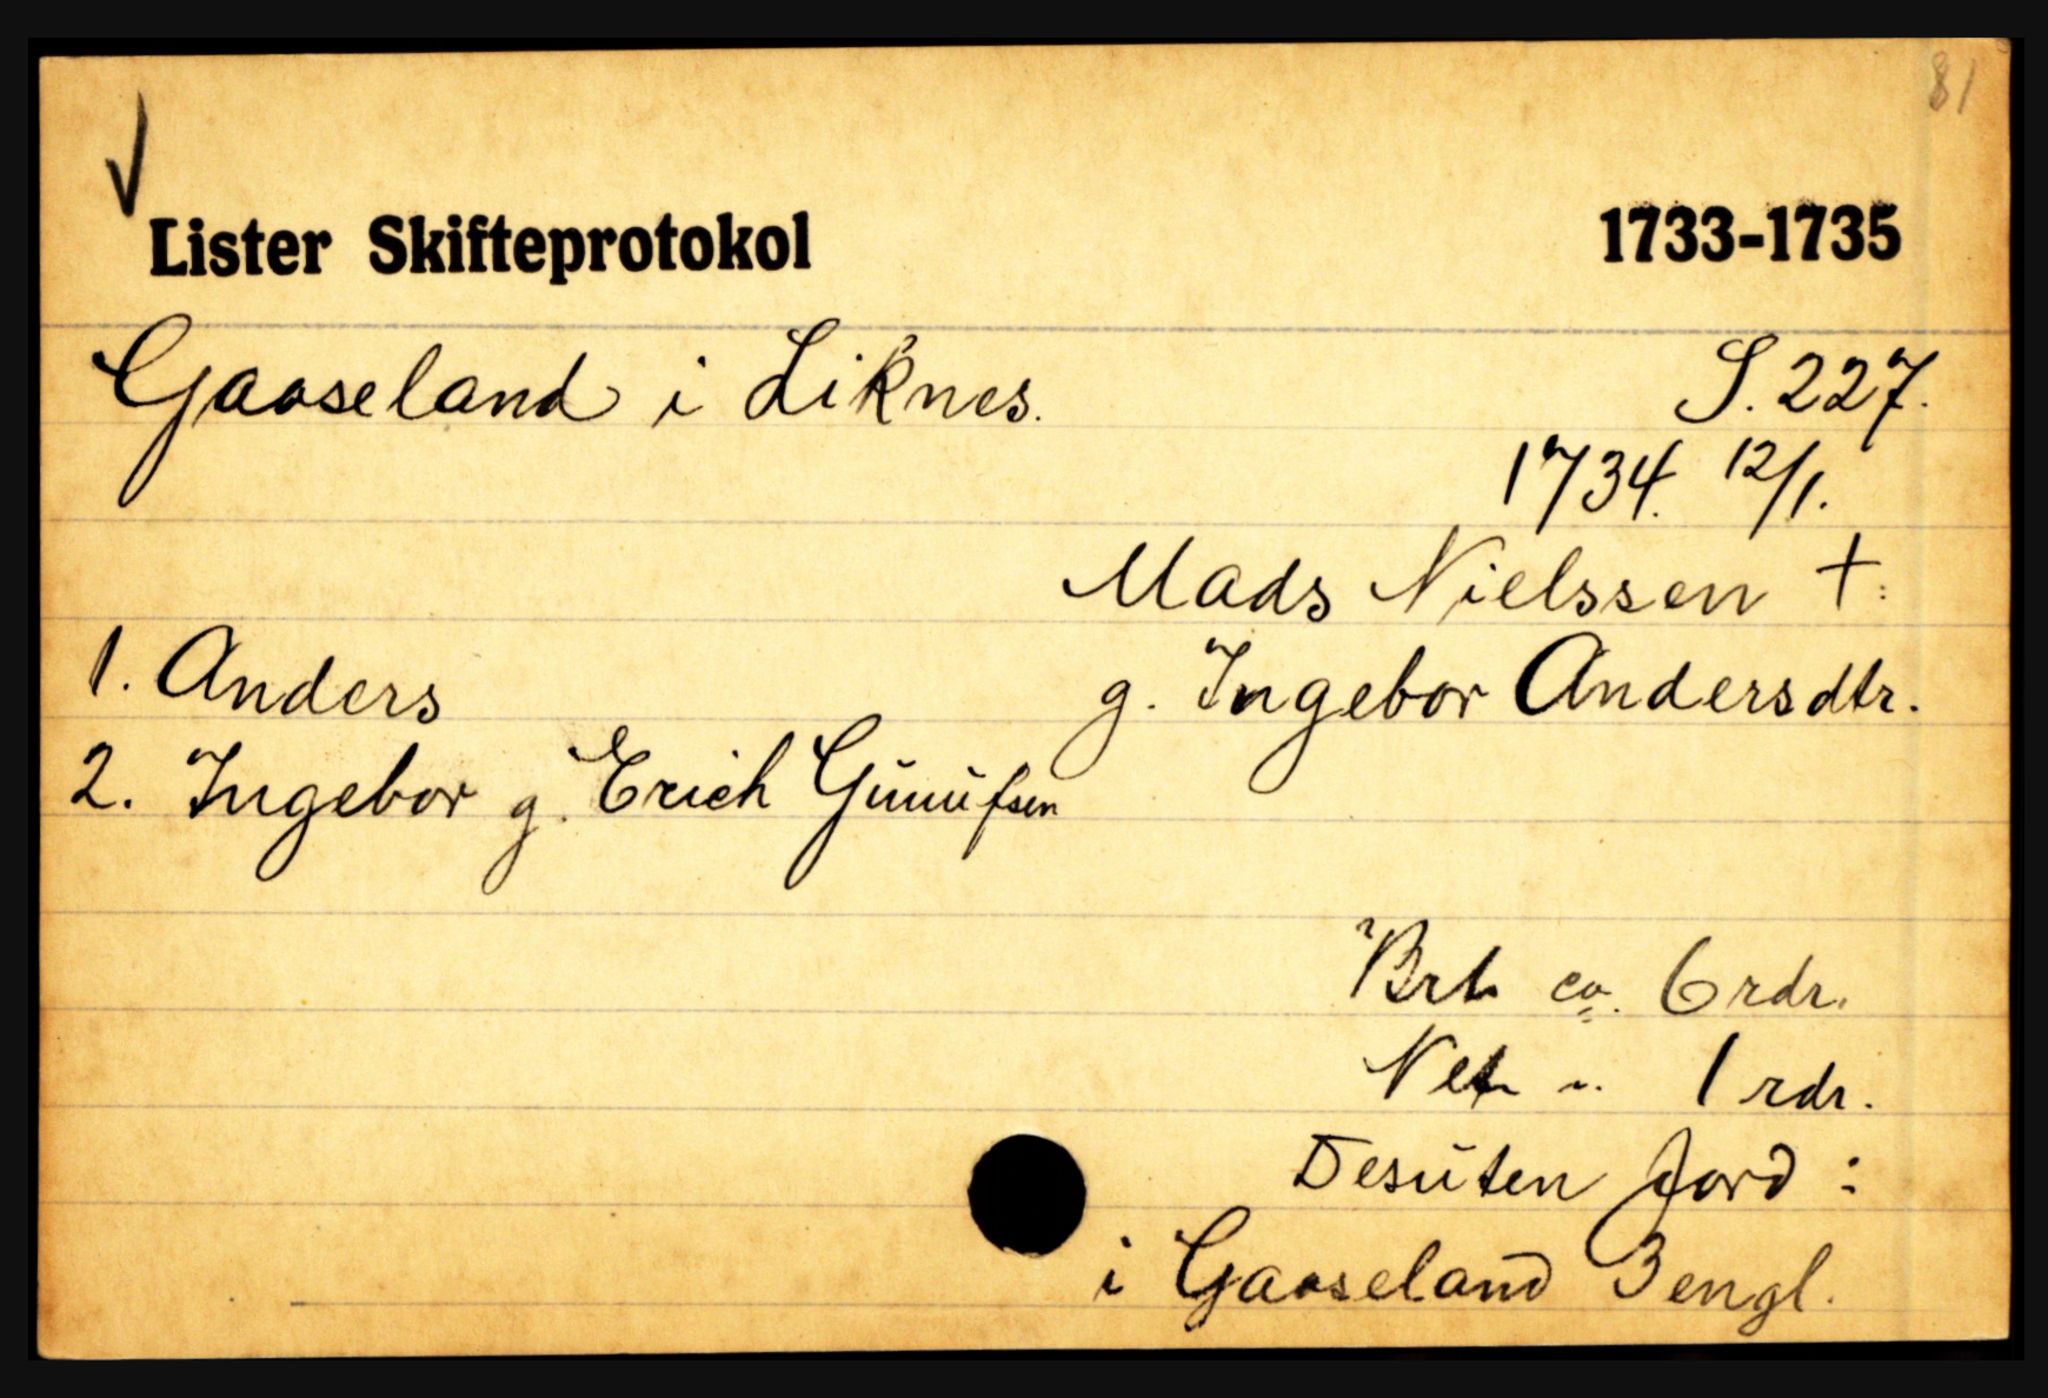 81
Lister Skifteprotokol 1733-1735
Gaaseland i Liknes. S. 227.
1734. 12/1.
Mads Nielssen +:
1. Anders g. Ingebor Andersdtr.
2. Ingebor g. Erich
Brt. ca. 6 rdr.
Net. " 1 rdr.
Desuten Jord :
i Gaaseland 3 engl.